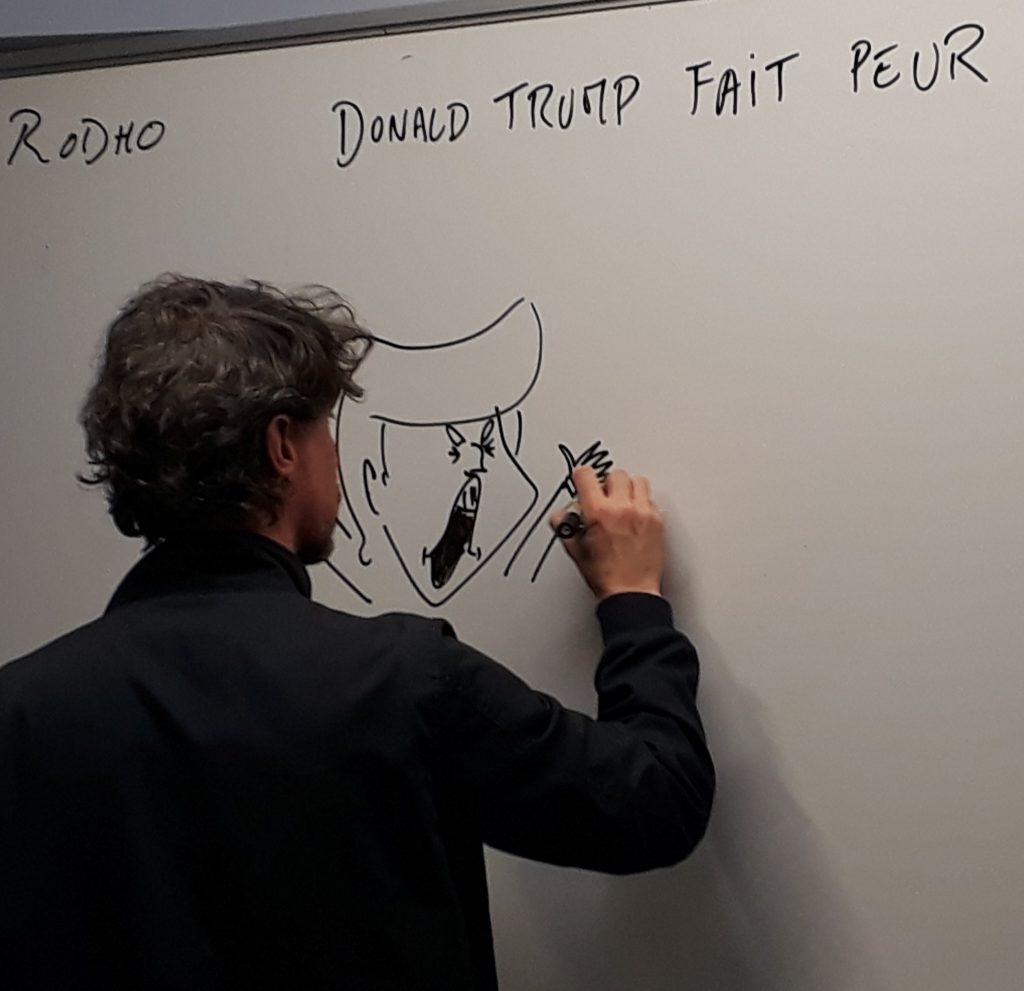 RODHO DONALD TRUMP FAiT PEUR